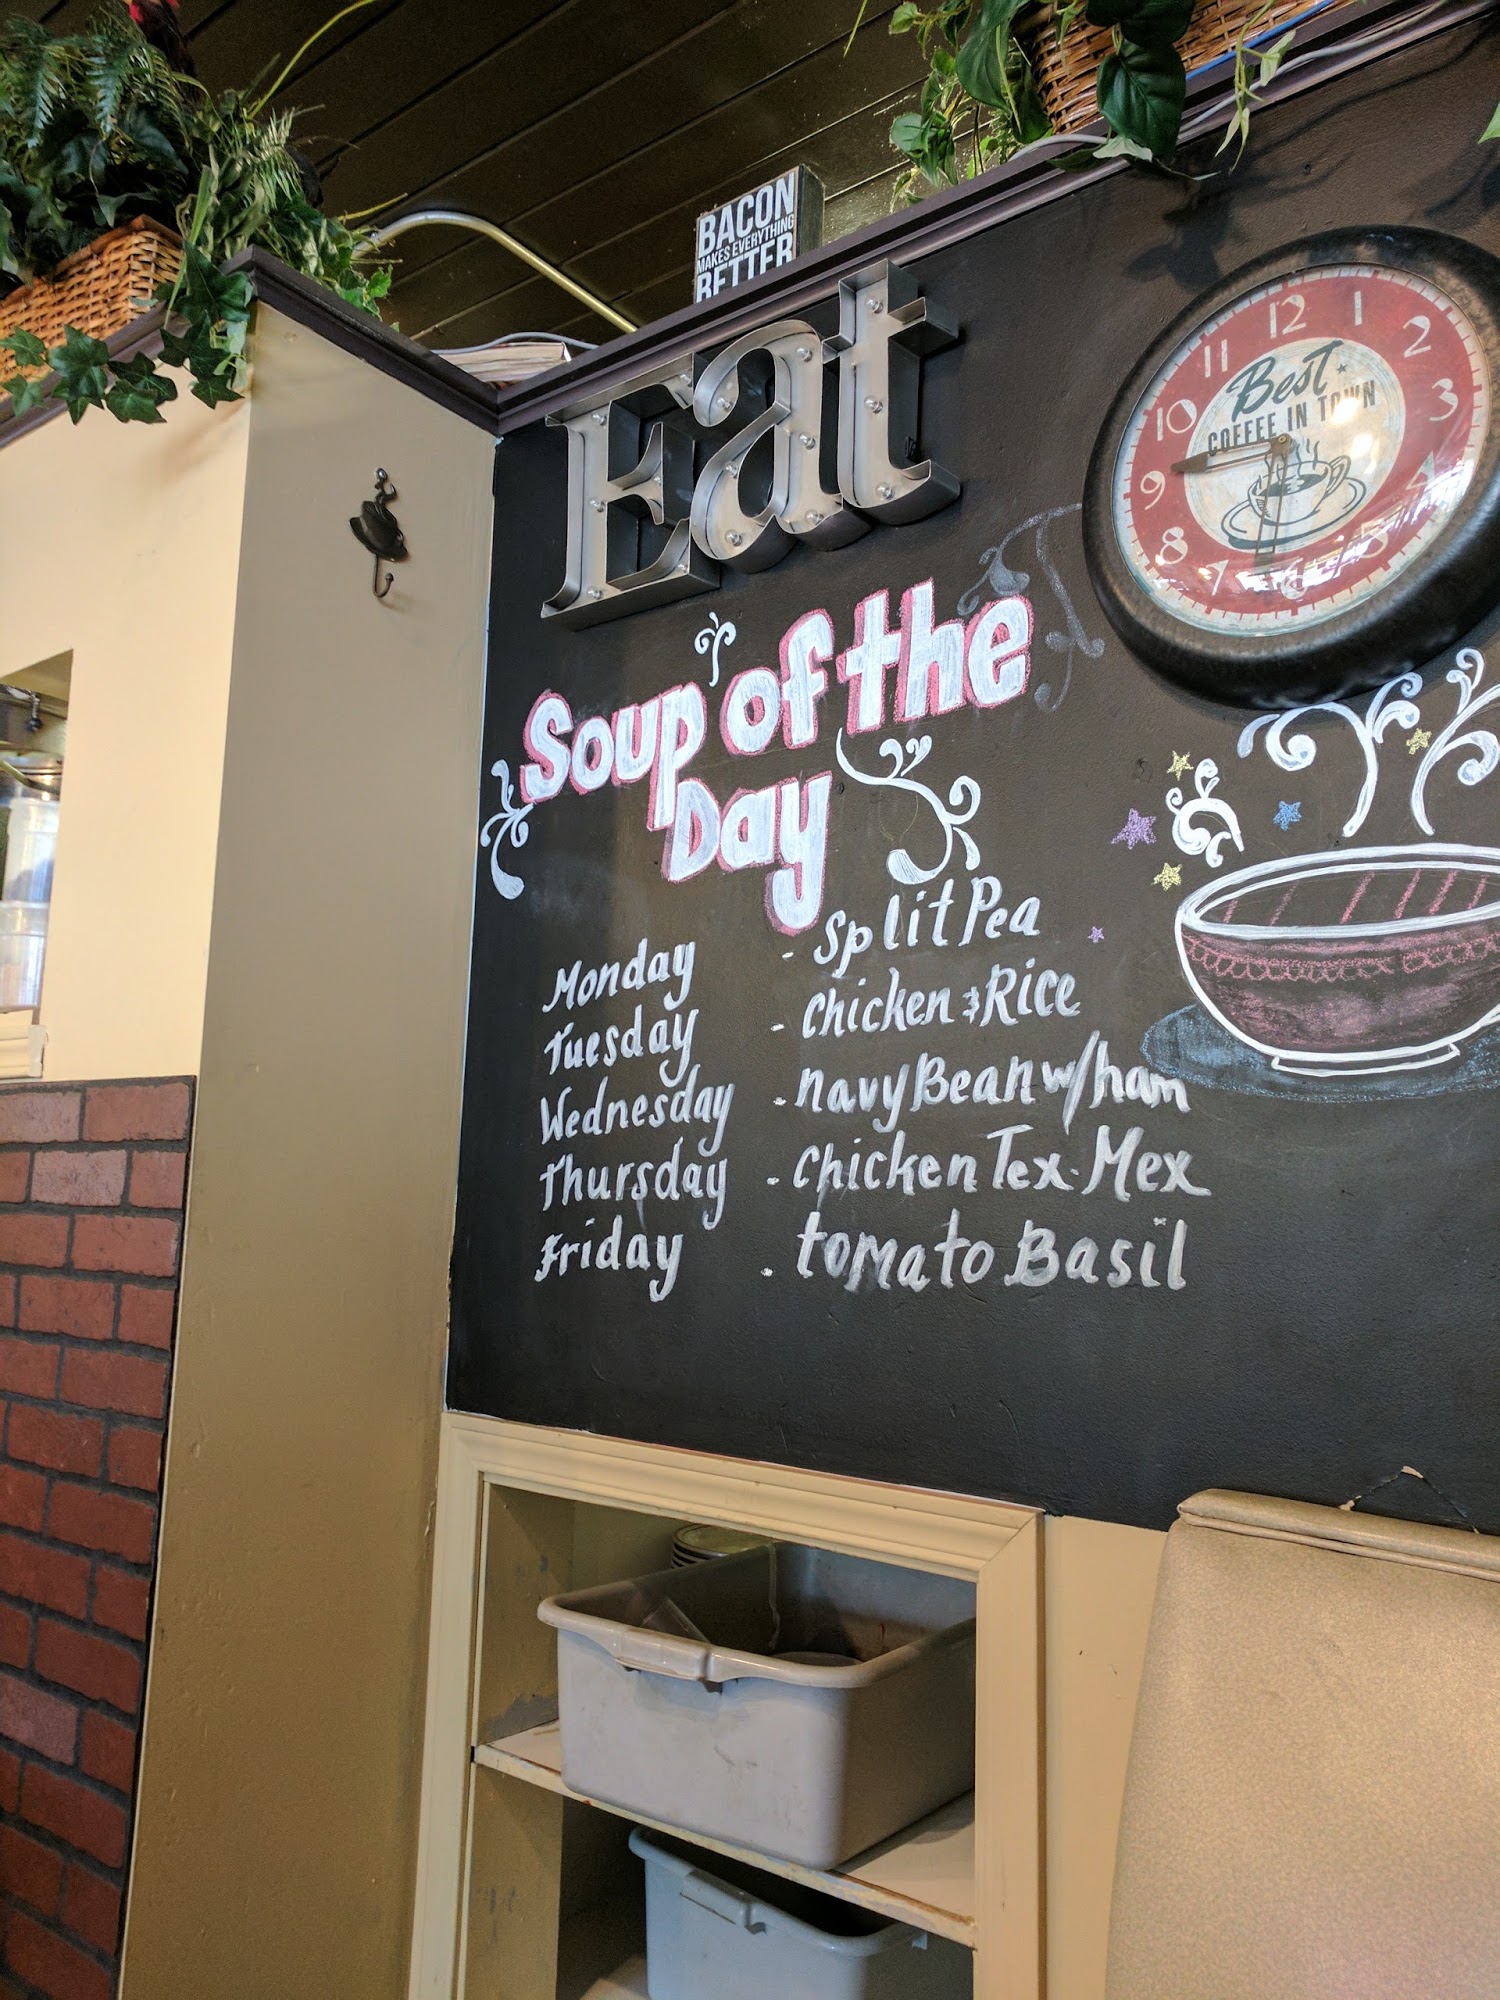 BACON
MAKES EVERYTHING
BETTER
Eat
12
1
2
3
4
5
6
7
8
9
10
11
Best
COFFEE IN TOWN
Soup of the
Day
Monday - Split Pea
Tuesday - Chicken & Rice
Wednesday - navy Bean w/ham
Thursday - Chicken Tex-Mex
Friday - tomato Basil